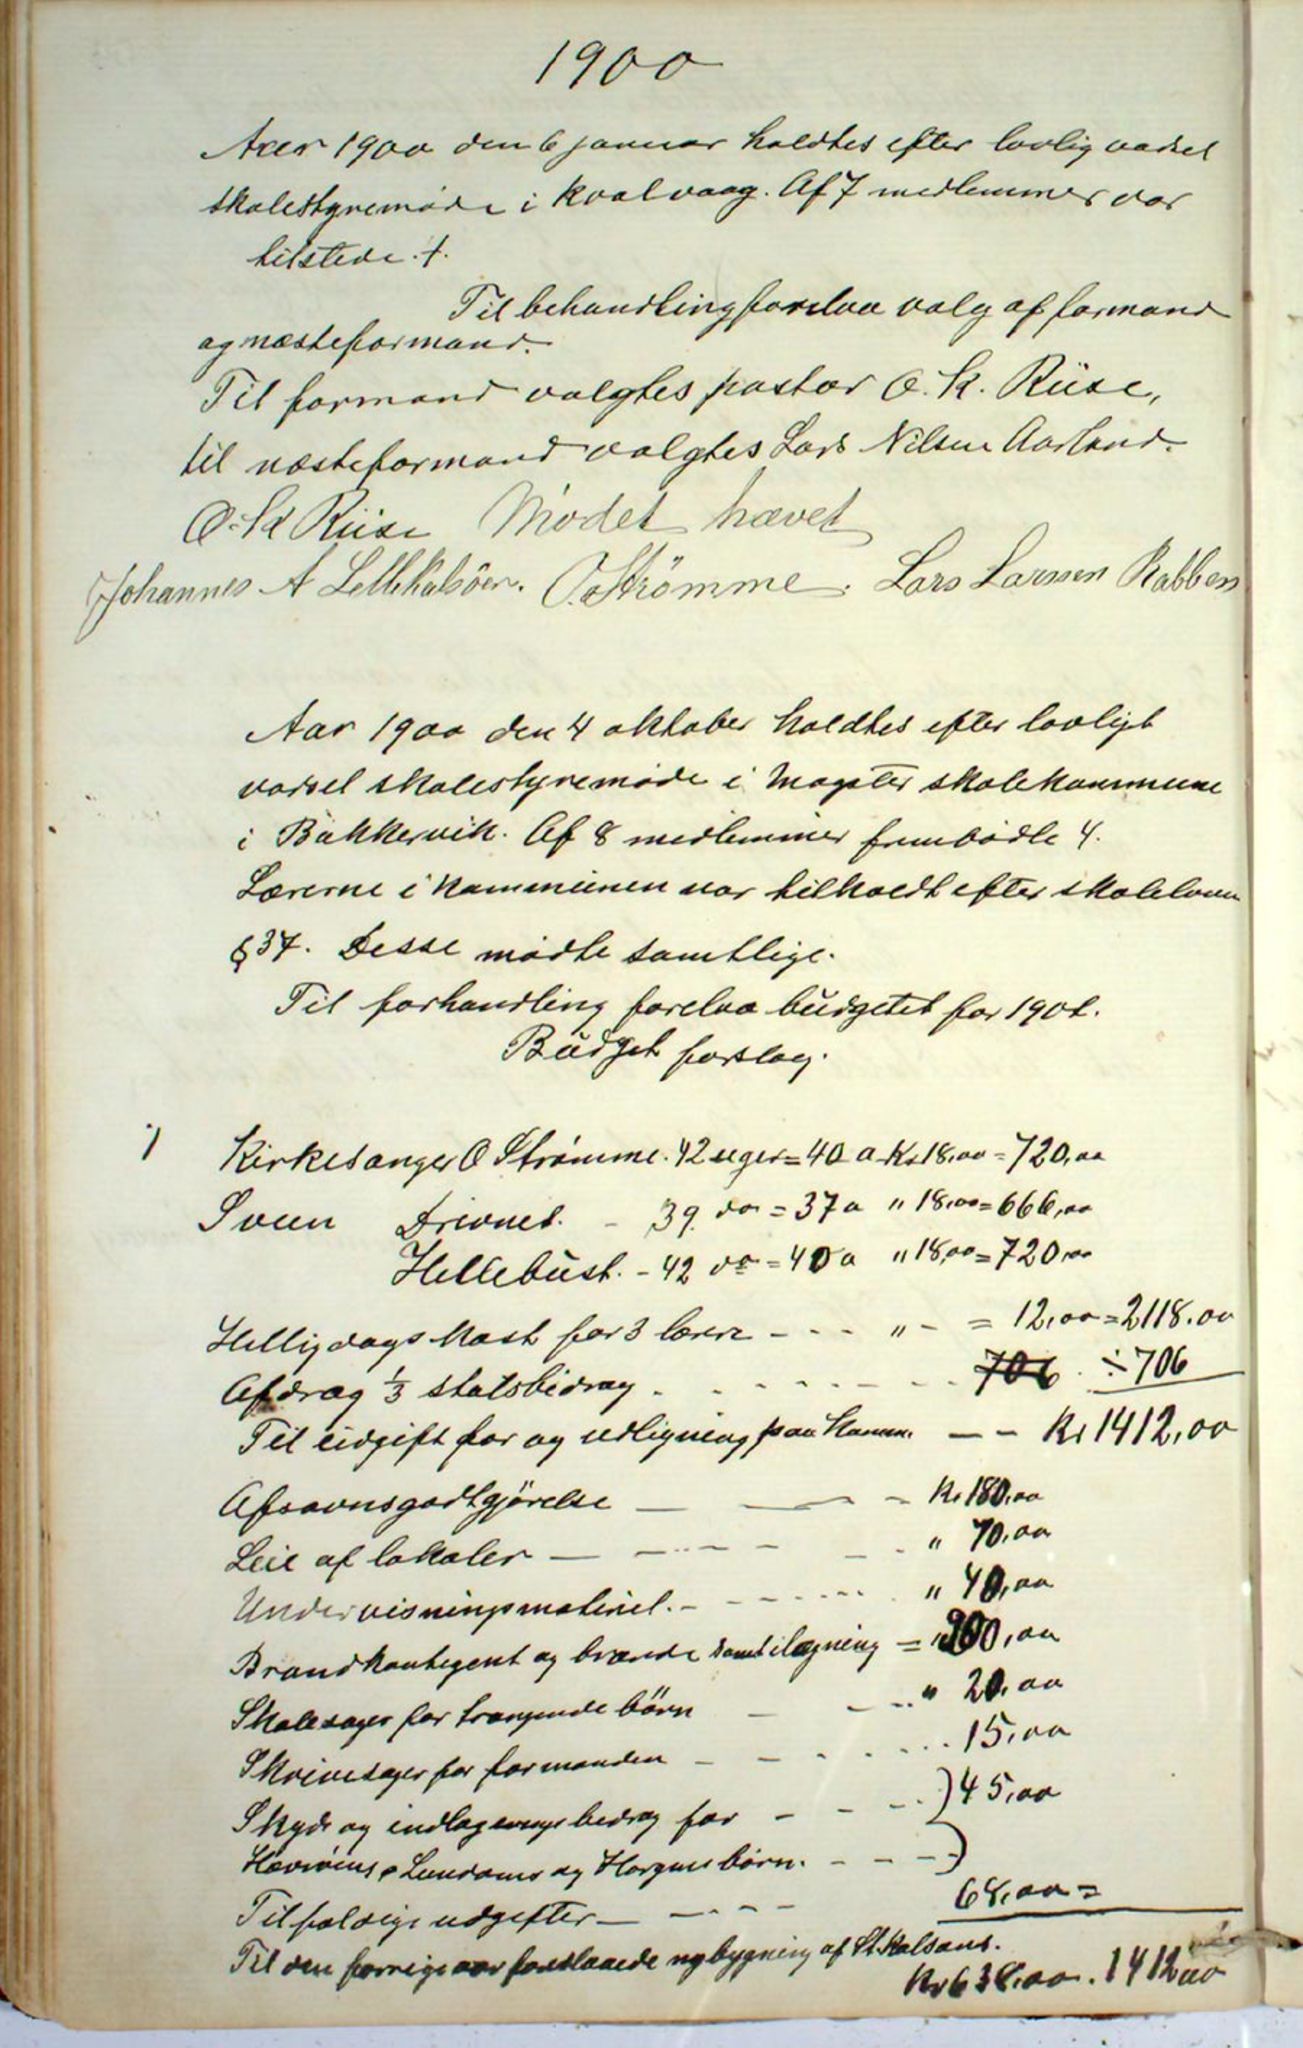 1900
Aar 1900 den 6 januar holdtes efter lovlig varsel
skolestyremøde i Kvalvaag. Af 7 medlemmer var
tilstede 7.
Til behandling forelaa valg af formand
og næsteformand.
Til formand valgtes pastor O. K. Riise,
til næsteformand valgtes Lars Nilsen Aarland.
O. K Riise Mødet hævet
Johannes A Lillekalsöen. O. Strömme. Lars Larssen Rabben
Aar 1900 den 4 oktober holdtes efter lovligt
varsel skolestyremøde i Møgster skolekommune
i Bakkervik. Af 8 medlemmer frembødte 4.
Lærerne i kommunen var tilholdt efter skoleloven
§ 37. Desse mødte samtlige.
Til forhandling forelaa budgetet for 1901.
Budget forslag.
1 Kirkesanger O Strömme. 42 uger = 40 a Kr 18,00 = 720,00
Sven Drivnes. - 39 do = 37 a " 18,00 = 666,00
Hellebust. - 42 do = 40 a " 18,00 = 720,00
Helligdagskost for 3 lærere - - - " - = 12,00 = 2118.00
Afdrag 1/3 statsbidrag . - - - - - 706 ÷ 706
Til udgift for og udligning paa Komm. — – Kr 1412,00
Afsavnsgodtgjörelse — — - Kr 180,00
Leie af lokaler — - - - - - " 70,00
Undervisningsmateriel. - - - - - " 40,00
Brandkontigent og brænde samt ilægning = " 200,00
Skolesager for trængende börn — - - " 20,00
Skrivesager for formanden - - - - - 15,00
Skyds og indlogerings bidrag for - - - ) 45,00
og börn. - - - )
Tilfældige udgifter — - - - 68,00 =
Til den forrige aar foreslaaede nybygning af St. Kalsøens.
Kr 638,00. 1412,00